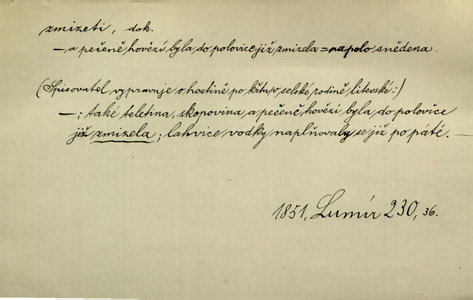 zmizeti, dok.
— a pečeně hovězí byla do polovice již zmizela = napolo snědena.
(Spisovatel vypravuje o hostině po křtu v selské rodině litevské:)
— ; také teletina, skopovina, a pečeně hovězí byla do polovice
již zmizela; lahvice vodky naplňovaly se již po páté. —
1851, Lumír 230, 36.